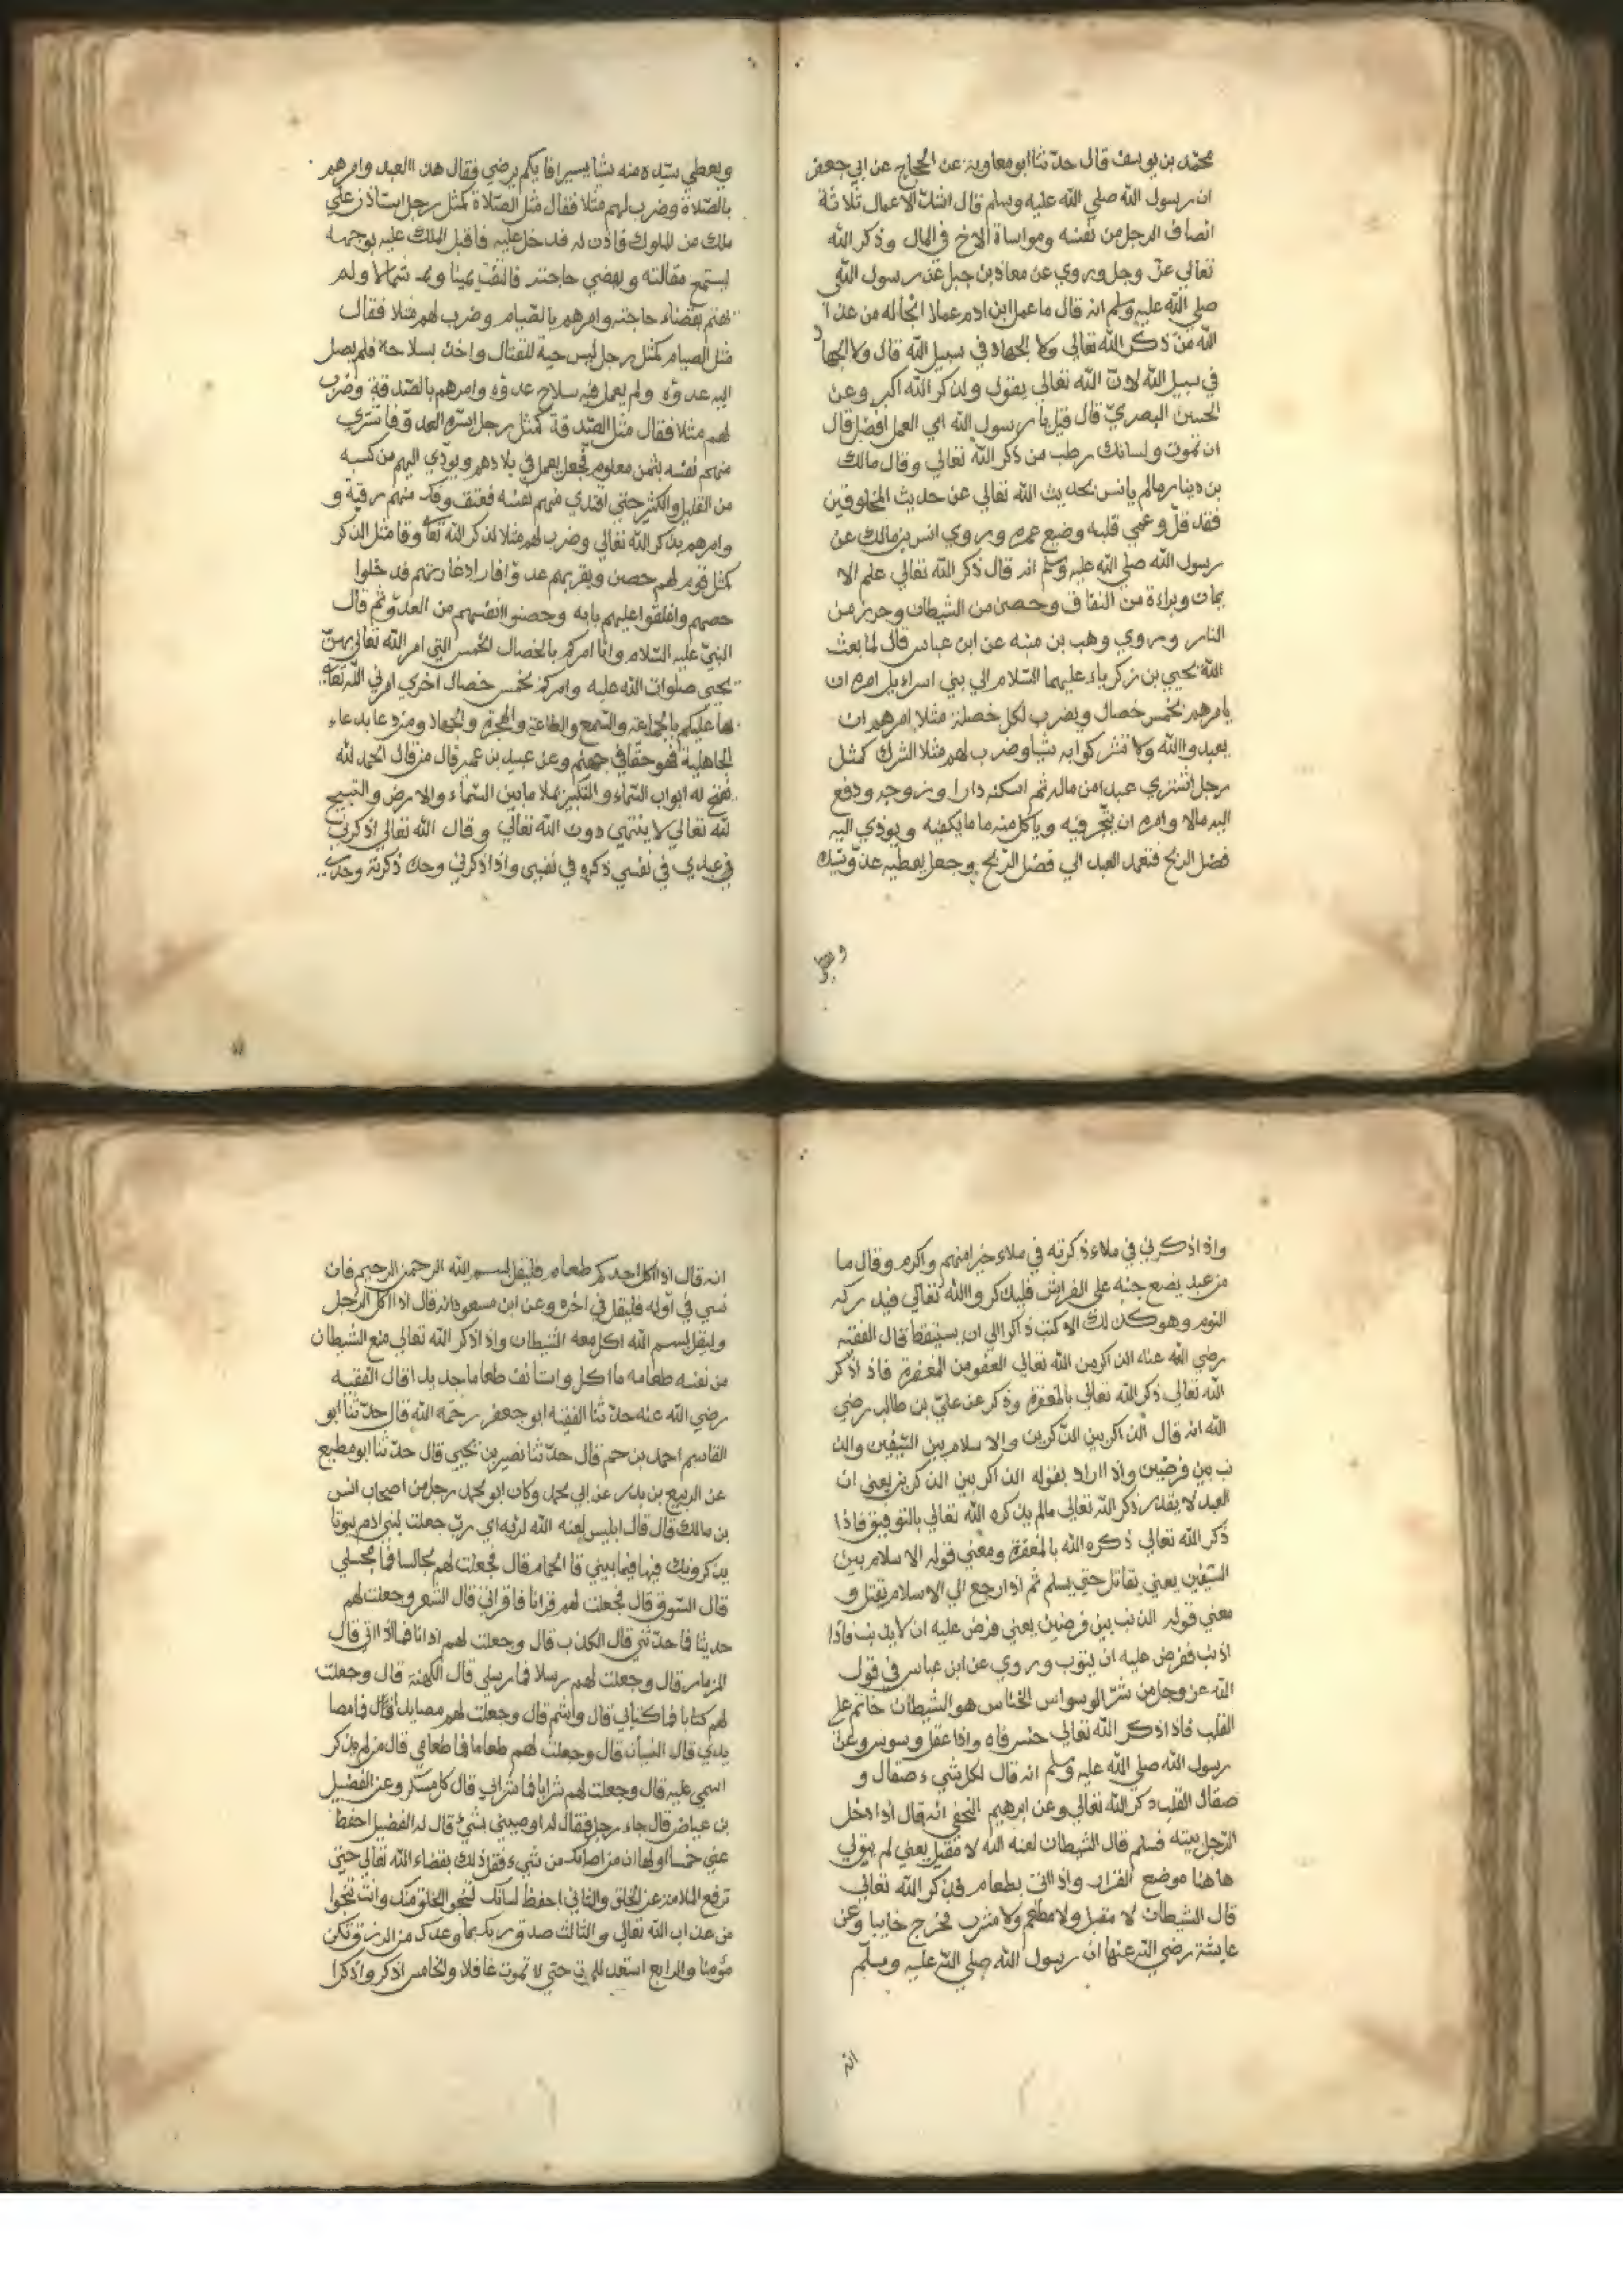 محمد بن يوسف قال حدثنا ابو معاوية عن الحجاج عن ابي جعفر
ان رسول الله صلي الله عليه وسلم قال اشد الاعمال ثلاثة
انصاف الرجل من نفسه ومواساة الاخ في المال وذكر الله
تعالي عز وجل وروي عن معاذ بن جبل عن رسول الله
صلي الله عليه وسلم انه قال ما عمل ابن ادم عملا انجا له من عذا
الله من ذكر الله تعالي ولا الجهاد في سبيل الله قال ولا الجها د
في سبيل الله لان الله تعالي يقول ولذكر الله اكبر وعن
الحسن البصري قال قيل يا رسول الله اي العمل افضل قال
ان تموت ولسانك رطب من ذكر الله تعالي وقال مالك
بن دينار من لم يانس بحديث الله تعالي عن حديث المخلوقين
فقد قل وعمي قلبه وضيع عمره وروي انس بن مالك عن
رسول الله صلي الله عليه وسلم انه قال ذكر الله تعالي علم الا
يمان وبراءة من النفاق وحصن من الشيطان وحرز من
النار وروي وهب بن منبه عن ابن عباس قال لما بعث
الله يحيي بن زكرياء عليهما السلام الي بني اسراءيل امره ان
يامرهم بخمس خصال ويضرب لكل خصلة مثلا امرهم ان
يعبدوا الله ولا تشركوا به شيا وضرب لهم مثلا الشرك كمثل
رجل اشتري عبدا من ماله ثم اسكنه دارا وزوجه ودفع
اليه مالا وامره ان يتجر فيه وياكل منه ما ما يكفيه ويوذي اليه
فضل الربح فتعمد العبد الي فضل الربح وجعل يعطيه عدو سيده
ويعطي
ويعطي سيده منه شيا يسيرا فايكم يرضي فقال هذا العبد وامرهم
بالصلاة وضرب لهم مثلا فقال مثل الصلاة كمثل رجل استاذن علي
ملك من الملوك فاذن له فدخل عليه فاقبل الملك عليه بوجهه
ليستمع مقالته ويقضي حاجته فالتفت يمينا و شمالا ولم
يهتم بقضاء حاجته وامرهم بالصيام وضرب لهم مثلا فقال
مثل الصيام كمثل رجل لبس جبة للقتال واخذ بسلاحه فلم يصل
اليه عدوه ولم يعمل فيه سلاح عدوه وامرهم بالصدقة وضرب
لهم مثلا فقال مثل الصدقة كمثل رجل اسره العدو فاشتري
منهم نفسه بثمن معلوم فجعل يعمل في بلادهم ويوذي اليهم من كسبه
من القليل والكثير حتي افتدي منهم نفسه فعتق وفك منهم رقبة و
وامرهم بذكر الله تعالي وضرب لهم مثلا لذكر الله تعا وقا مثل الذكر
كمثل قوم لهم حصن وبقربهم عدو فدخلوا
حصنهم واغلقوا عليهم بابه وحصنوا انفسهم من العدو ثم قال
النبي عليه السلام وانا امركم بالخصال الخمس التي امر الله تعالي بهن
يحيي صلوات الله عليه وامركم بخمس خصال اخري امرني الله تعا
بها عليكم بالجماعة والسمع والطاعة والهجرة والجهاد ومن دعا بدعاء
الجاهلية فهو حقا في جهنم وعن عبيد بن عمير قال من قال الحمد لله
تفتح له ابواب السماء والتكبير يملا ما بين السماء والارض والتسبيح
لله تعالي لا ينتهي دون الله تعالي وقال الله تعالي اذكرني
عبدي في نفسي ذكره في نفسي واذا ذكرني وحده ذكرته وحده
واذا ذكرني في ملاء ذكرته في ملاء خير منهم واكرم وقال ما
من عبد يضع جنبه علي الفراش فليذكروا الله تعالي فيدركه
النوم وهو كذلك الا كتب ذاكرا الي ان يستيقظ قال الفقيه
رضي الله عنه الذكر من الله تعالي العفو من المغفرة فاذا ذكر
الله تعالي ذكر الله تعالي بالمغفرة وذكر عن علي بن طالب رضي
الله انه قال الذكر بين الذكرين والاسلام بين السيفين والذ
نب بين فرضين واذا اراد بقوله الذكر بين الذكرين يعني ان
العبد لا يقدر ذكر الله تعالي مالم يذكره الله تعالي بالتوفيق فاذا
ذكر الله تعالي ذكره الله بالمغفرة ومعني قوله الاسلام بين
السيفين يعني يقاتل حتي يسلم ثم اذا رجع الي الاسلام يقتل و
معني قوله الذنب بين فرضين يعني فرض عليه ان لا يذنب فاذا
اذنب ففرض عليه ان يتوب وروي عن ابن عباس في قول
الله عز وجل من شر الوسواس الخناس هو الشيطان خاتم علي
القلب فاذا ذكر الله تعالي خنس فاه واذا غفل وسوس وعن
رسول الله صلي الله عليه وسلم انه قال لكل شيء صقال و
صقال القلب ذكر الله تعالي وعن ابرهيم النخعي انه قال اذا دخل
الرجل بيته فسلم قال الشيطان لعنه الله لا مقيل يعني لم يبق لي
هاهنا موضع القرار واذا اتي بطعام فذكر الله تعالي
قال الشيطان لا مقيل ولا مطعم ولا مشرب فخرج خايبا وعن
عايشة رضي الله عنها ان رسول الله صلي الله عليه وسلم
انه
انه قال اذا اكل احدكم طعام فليقل بسم الله الرحمن الرحيم فان
نسي في اوله فليقل في اخره وعن ابن مسعود انه قال اذا اكل الرجل
وليقل بسم الله اكل معه الشيطان واذا ذكر الله تعالي منع الشيطان
من نفسه طعامه ما اكل واستانف طعاما جديدا قال الفقيه
رضي الله عنه حدثنا الفقيه ابو جعفر رحمه الله قال حدثنا ابو
القاسم احمد بن حم قال حدثنا نصير بن يحيي قال حدثنا ابو مطيع
عن الربيع بن بدر عن ابي محمد وكان ابو محمد رجل من اصحاب انس
بن مالك قال قال ابليس لعنه الله لربه اي رب جعلت لبني ادم بيوتا
يذكرونك فيها فما بيتي قا الحمام قال فجعلت لهم مجالسا فما مجلسي
قال السوق قال فجعلت لهم قرانا فما قراني قال الشعر وجعلت لهم
حديثا فما حدثني قال الكذب قال وجعلت لهم اذانا فما اذاني قال
المزمار قال وجعلت لهم رسلا فما رسلي قال الكهنة قال وجعلت
لهم كتابا فما كتابي قال واشم قال وجعلت لهم مصايد قال فما مصا
يدي قال النساء قال وجعلت لهم طعاما فما طعامي قال من لم يذكر
اسمي عليه قال وجعلت لهم شرابا فما شرابي قال كل مسكر وعن الفضيل
بن عياض قال جاء رجل فقال له اوصيني بشيء قال له الفضيل احفظ
عني خمسا اولها ان من اصابك من شيء فقل ذلك بقضاء الله تعالي حتي
ترفع الملامة عن الخلق والثاني احفظ لسانك لتنجي الخلق منك وانت تنجوا
من عذاب الله تعالي والثالث صدق ربك بما وعدك من الرزق تكن
مؤمنا والرابع استعد للموت حتي لا تموت غافلا والخامس اذكر واذكرا